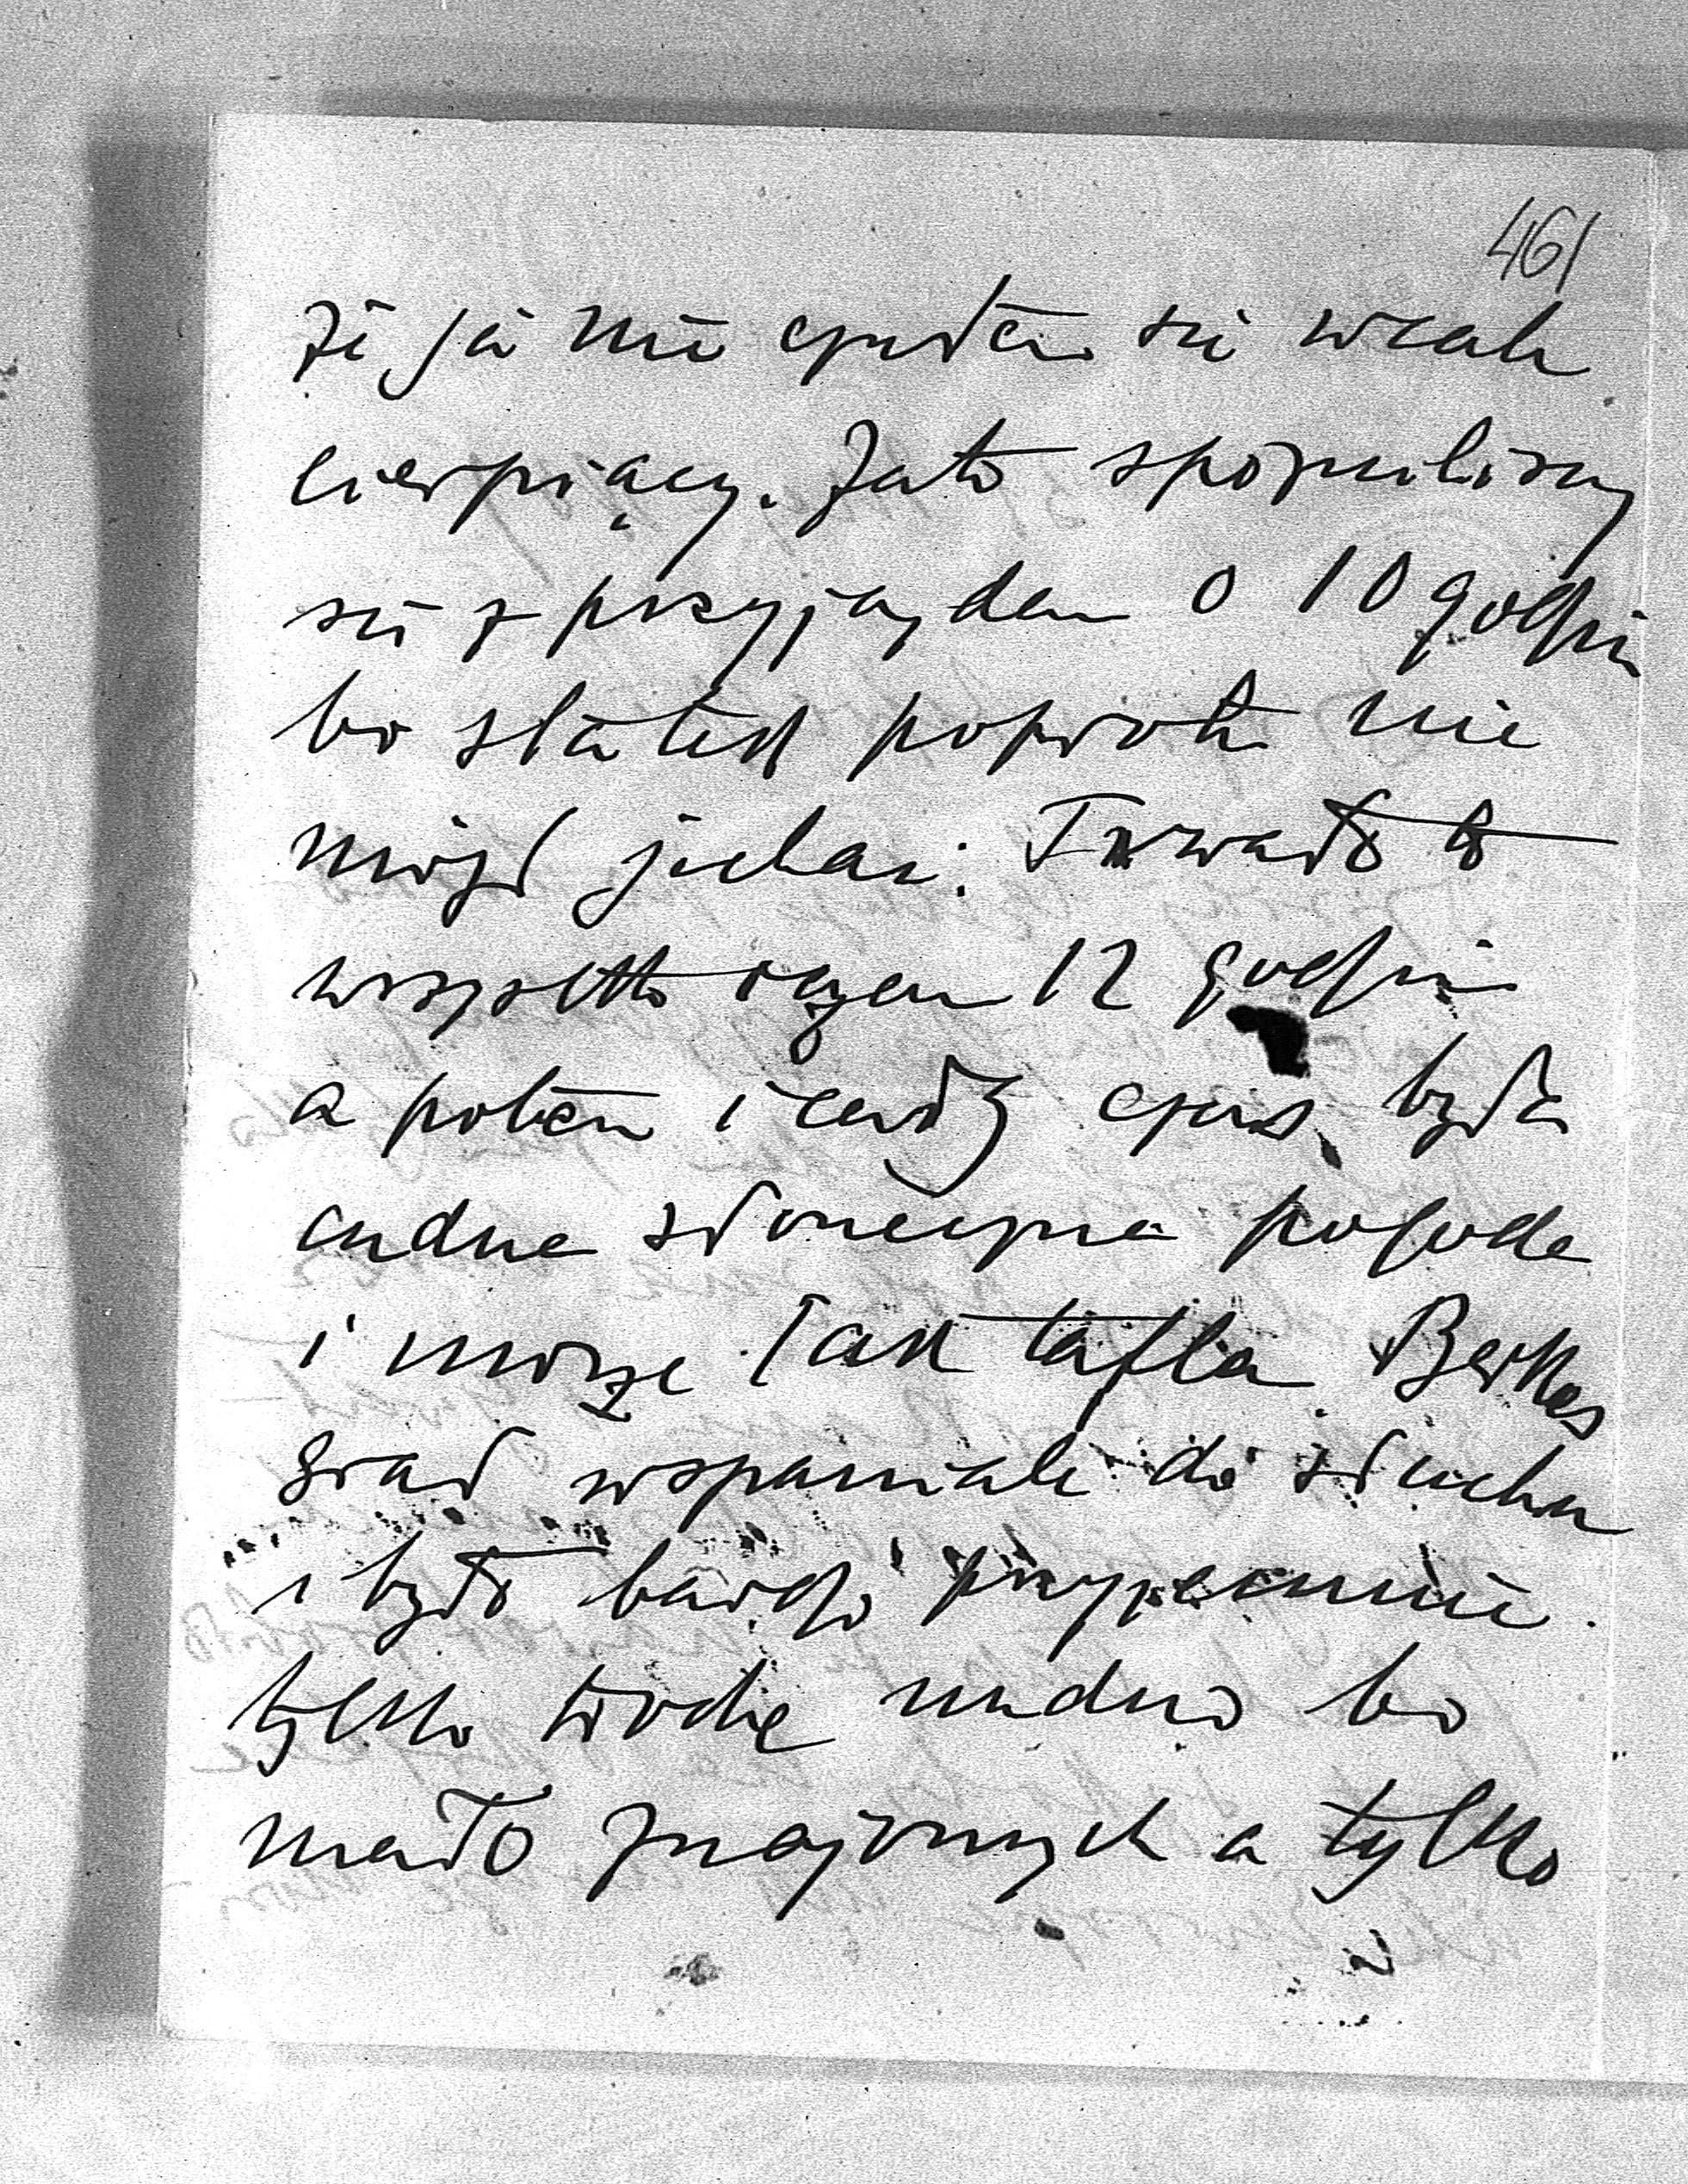 461
że ja nie czułem się wcale
cierpiący. Zato spóźniliśmy
się z przyjazdem o 10 godzin
bo statek poprostu nie
mógł jechać. Trwało to
wszystko razem 12 godzin
a potem i cały czas była
cudna słoneczna pogoda
i morze jak tafla. Berkes
grał wspaniale do słuchu
i było bardzo przyjemnie.
tylko trochę nudno bo
mało znajomych a tylko